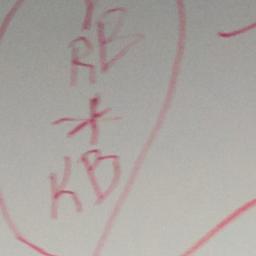 RB
*
KB